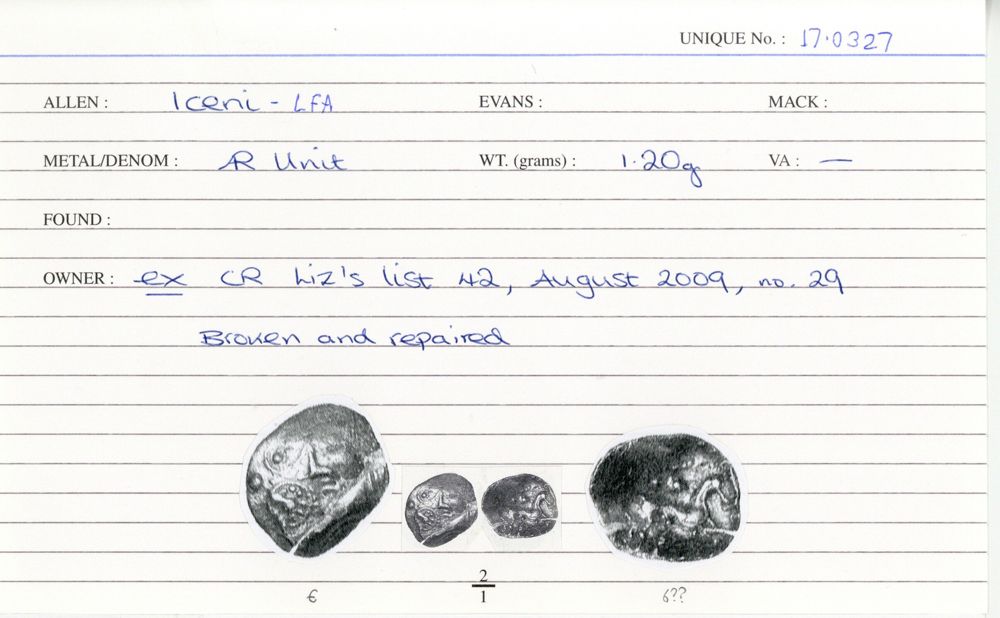 UNIQUE No. : 17·0327
ALLEN : Iceni - LFA EVANS : MACK :
METAL/DENOM : AR Unit WT. (grams) : 1·20g VA : —
FOUND :
OWNER : ex CR Liz's list 42, August 2009, no. 29
Broken and repaired
2
1
€ 6??